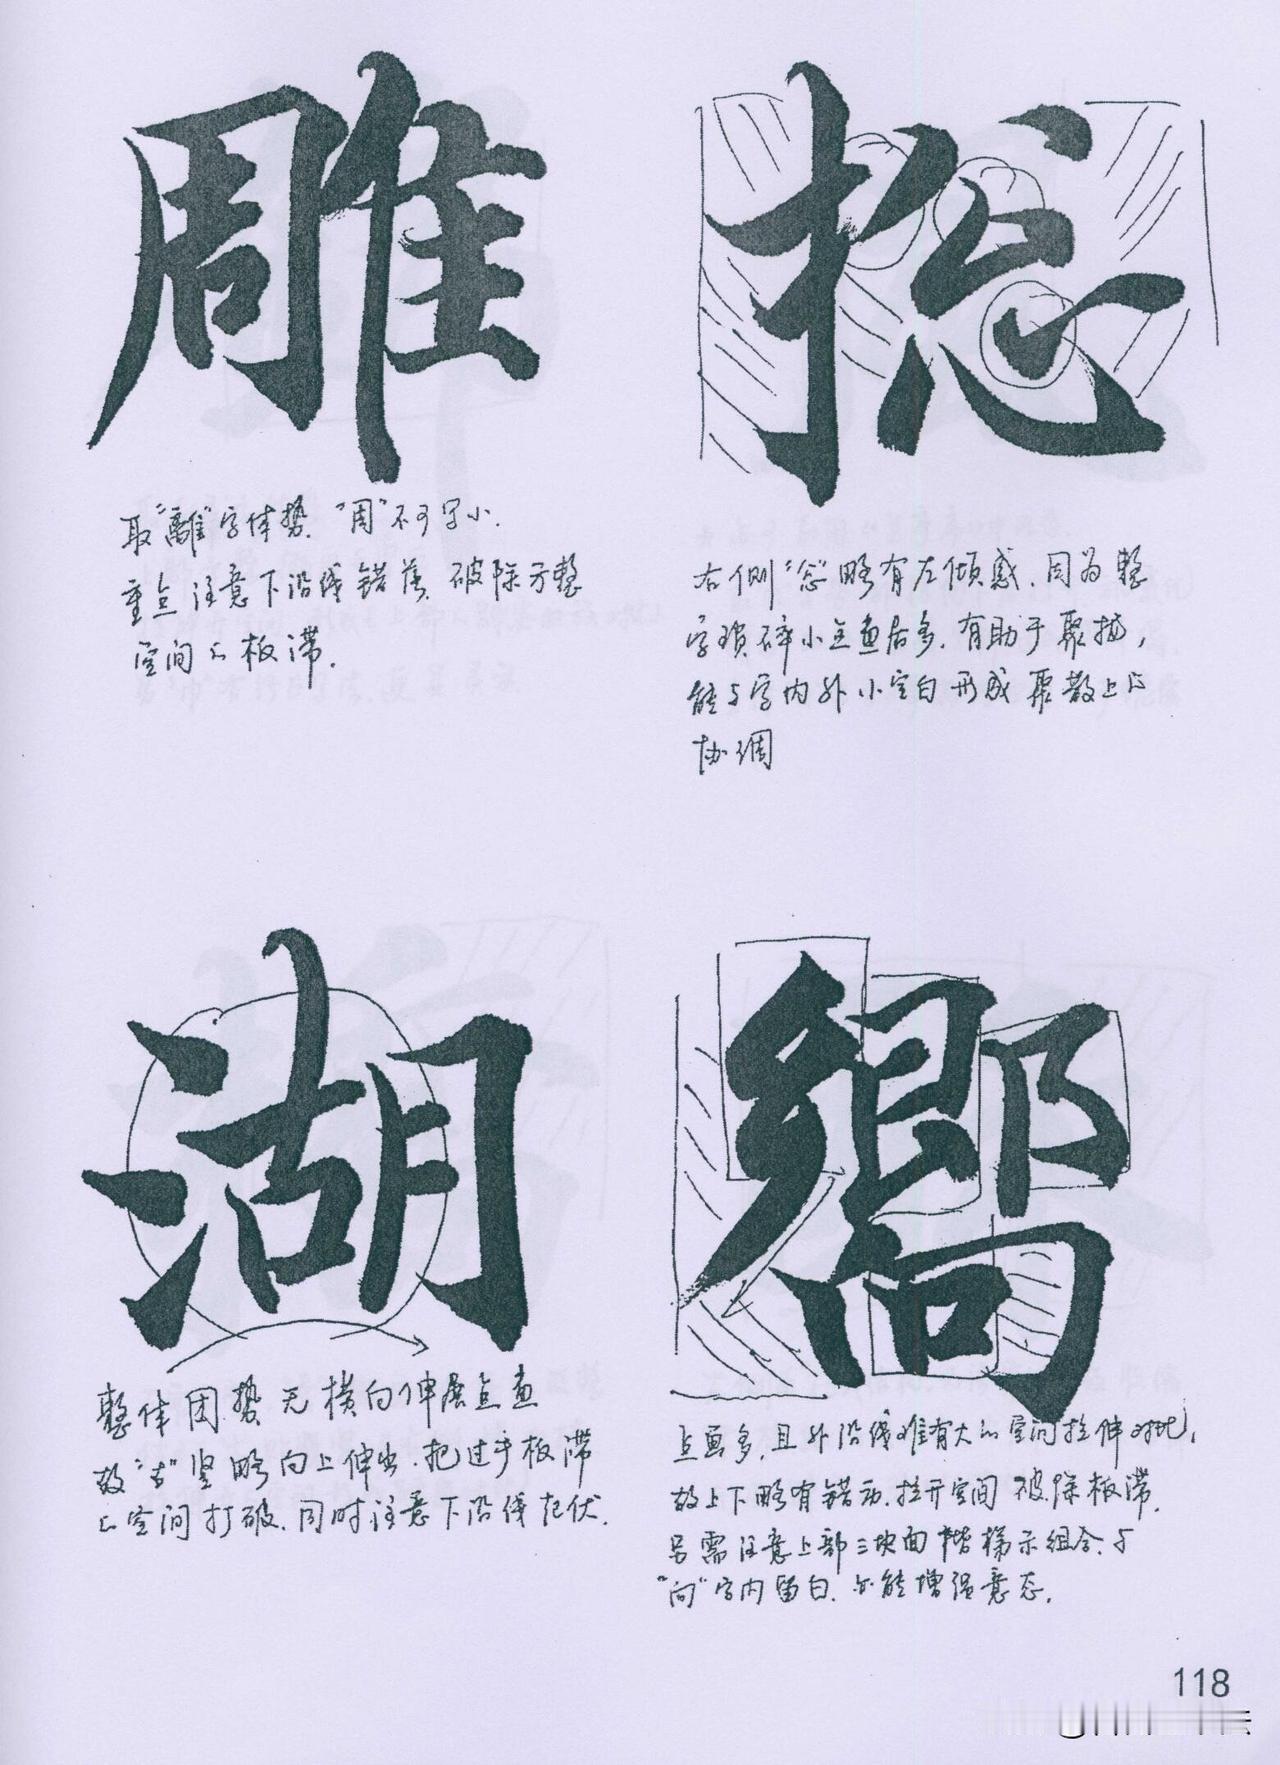 雕
取"離"字体势."周"不可写小.
重点注意下沿线错落.破除方整
空间的板滞.
捴
右侧"怱"略有左倾感.因为整
字琐碎小点画居多.有助于聚拢,
能与字内外小空白形成聚散上的
协调
湖
整体团势无横向伸展点画
故"古"竖略向上伸出.把过于板滞
的空间打破.同时注意下沿线起伏.
嚮
点画多.且外沿线难有大的空间拉伸对比,
故上下略有错动.拉开空间破除板滞.
另需注意上部三块面阶梯示组合.与
"向"字内留白.亦能增强意态.
118